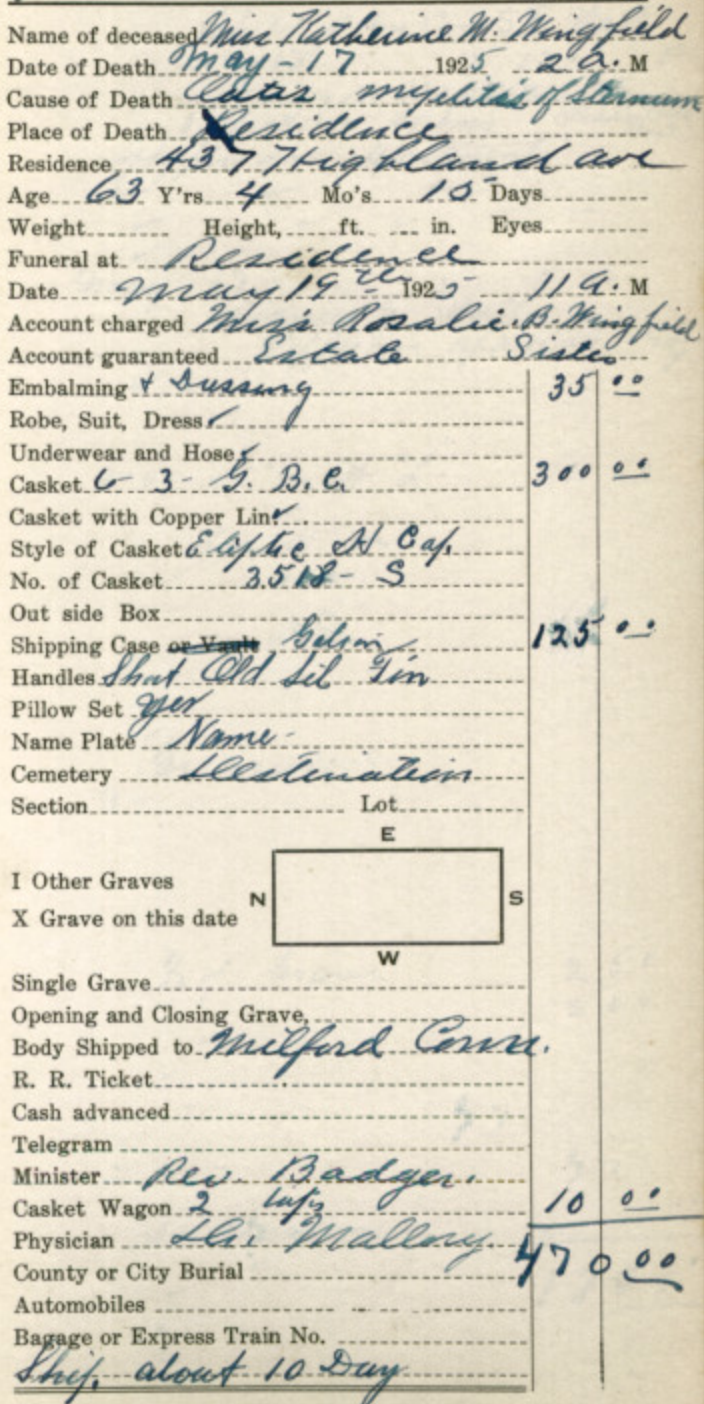 Name of deceased Miss Katherine M. Wingfield
Date of Death May - 17 1925 2 a. M
Cause of Death myelitis of Sternum
Place of Death Residence
Residence 4377 Highland ave
Age 63 Y'rs 4 Mo's 15 Days
Weight Height, ft. in. Eyes
Funeral at Residence
Date May 19th 1925 11 a. M
Account charged Miss Rosalie. B. Wingfield
Account guaranteed Estate Sister
Embalming & Dressing 35 00
Robe, Suit, Dress ✓
Underwear and Hose ✓
Casket 6-3- G. B. C. 300 00
Casket with Copper Lin
Style of Casket Eliptic Cap.
No. of Casket 3518 - S
Out side Box
Shipping Case or Vault 125 00
Handles Short Old Sil
Pillow Set yes
Name Plate Name
Cemetery Destination
Section Lot
E
I Other Graves
N S
X Grave on this date
W
Single Grave
Opening and Closing Grave,
Body Shipped to Milford Conn.
R. R. Ticket
Cash advanced
Telegram
Minister Rev. Badger.
Casket Wagon 2 10 00
Physician Dr. Mallory
470 00
County or City Burial
Automobiles
Bagage or Express Train No.
Ship. about 10 Day